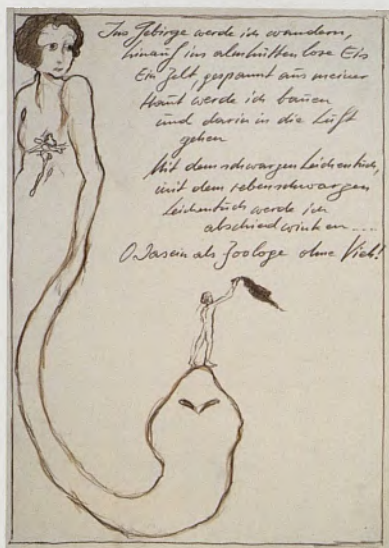 Ins Gebirge werde ich wandern,
hinauf ins almhüttenlose Eis
Ein Zelt, gespannt aus meiner
Haut werde ich bauen
und darin in die Luft
gehen
Mit dem schwarzen Leichentuch,
mit dem rabenschwarzen
Leichentuch werde ich
abschiedwinken....
O Dasein als Zoologe ohne Vieh!